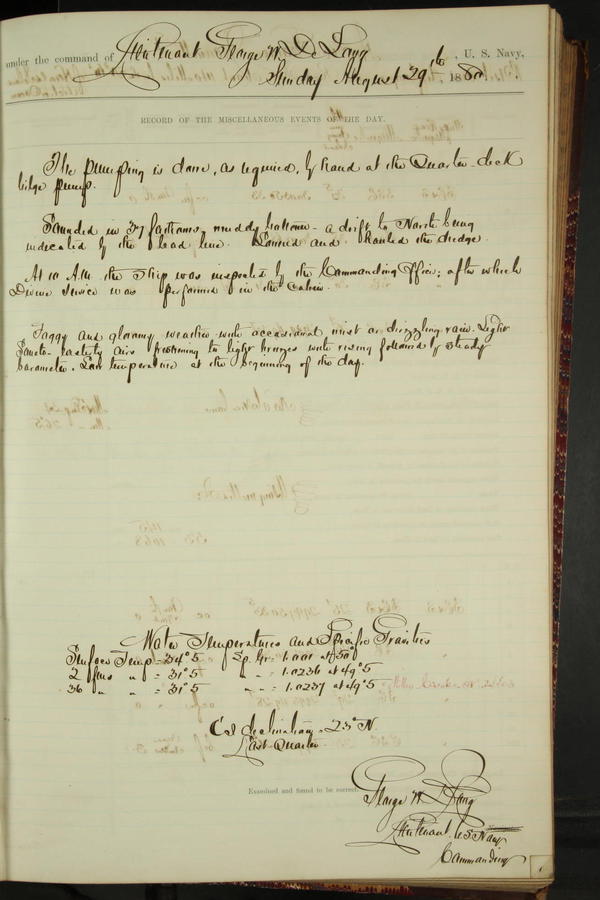 under the command of Lieutenant George W. De Long, U. S. Navy,
Sunday August 29th, 1880
RECORD OF THE MISCELLANEOUS EVENTS OF THE DAY.
The pumping is done, as required, by hand at the Quarter-deck
bilge pump.
Sounded in 37 fathoms, muddy bottom - a drift to North being
indicated by the lead line. and hauled the dredge.
At 10 A.M. the Ship was inspected by the Commanding Officer; after which
Divine Service was performed in the Cabin.
Foggy and gloomy weather with occasional mist or drizzling rain. Light
South-easterly airs freshening to light breezes with rising followed by steady
barometer. Low temperature at the beginning of the day.
Water Temperatures and Specific Gravities
Surface Temp = 34°5 Sp. Gr. = 1.001 at 50°
2 fms " = 31°5 " " = 1.0236 at 49°5
36 " " = 31°5 " " = 1.0237 at 49°5
declination - 23° N.
Last Quarter
Examined and found to be correct.
George W. De Long
Lieutenant U.S. Navy
Commanding